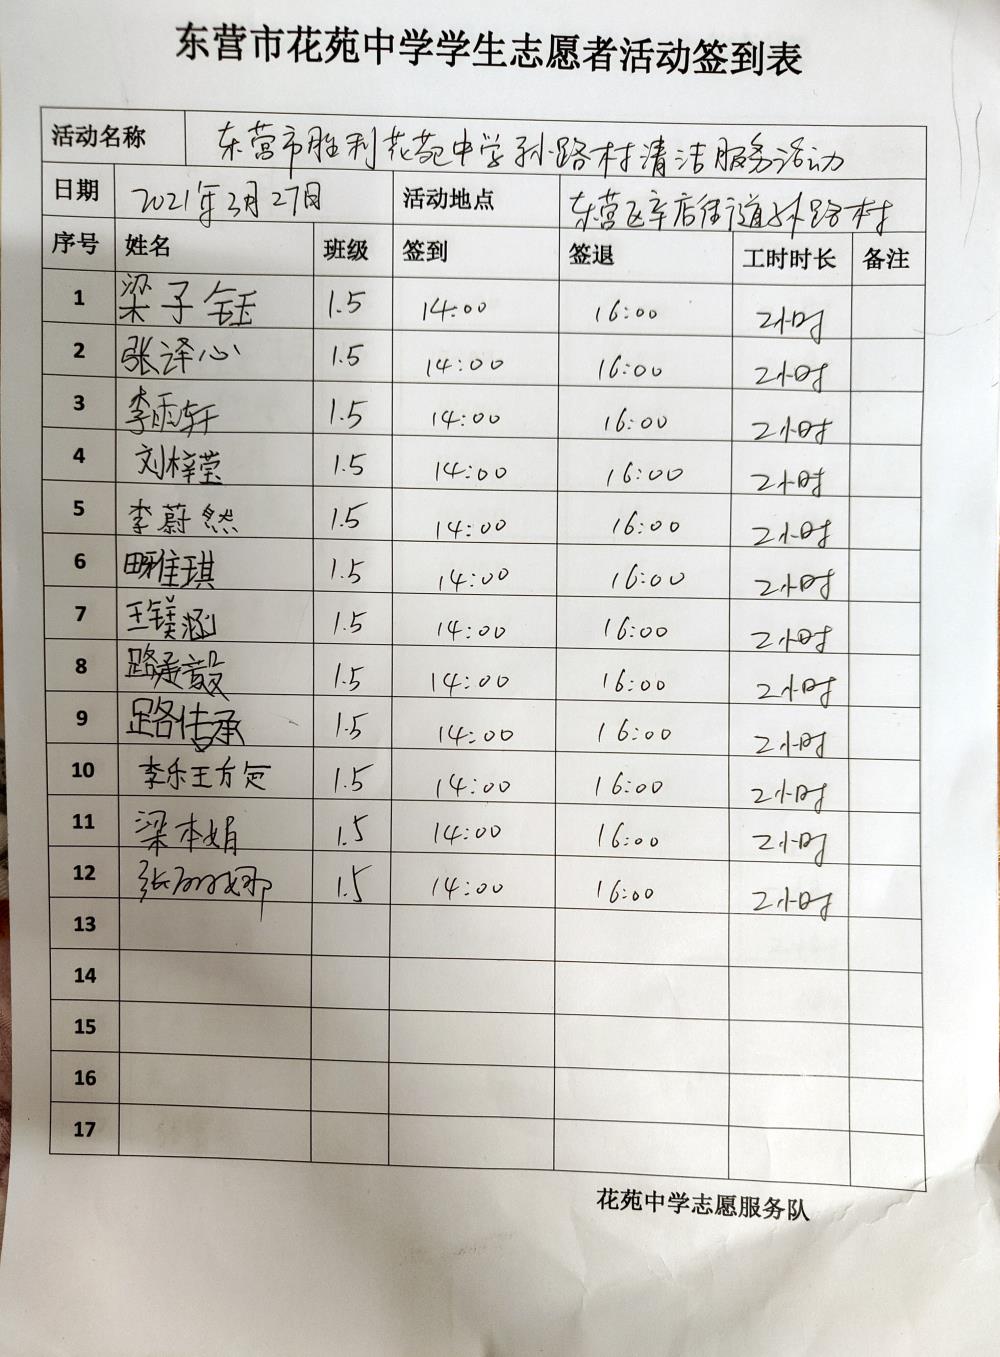 东营市花苑中学学生志愿者活动签到表
活动名称 东营市胜利花苑中学孙路村清洁服务活动
日期 2021年3月27日 活动地点 东营区辛店街道孙路村
序号 姓名 班级 签到 签退 工时时长 备注
1 梁子钰 1.5 14:00 16:00 2小时
2 张译心 1.5 14:00 16:00 2小时
3 李雨轩 1.5 14:00 16:00 2小时
4 刘梓莹 1.5 14:00 16:00 2小时
5 李蔚然 1.5 14:00 16:00 2小时
6 田雅琪 1.5 14:00 16:00 2小时
7 王镁涵 1.5 14:00 16:00 2小时
8 路承毅 1.5 14:00 16:00 2小时
9 路传承 1.5 14:00 16:00 2小时
10 李乐王方定 1.5 14:00 16:00 2小时
11 梁本娟 1.5 14:00 16:00 2小时
12 张娜 1.5 14:00 16:00 2小时
13
14
15
16
17
花苑中学志愿服务队